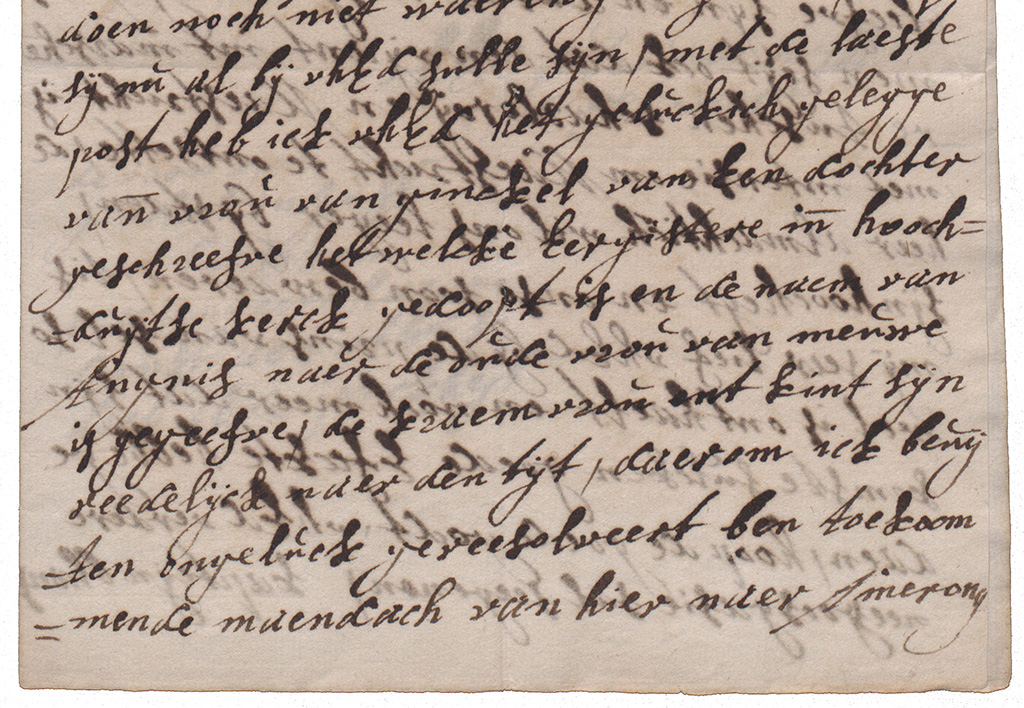 doen noch niet waeren
sij nu al bij uhEd sulle sijn, met de laeste
post heb ick uhEd het geluckich gelegge
van vrou van ginckel van een dochter
geschreefve hetwelcke eergistere in hooch=
=duijtse kerck gedoopt is en de naem van
Angnis naer de oude vrou van meuwe
is gegeefve, de kraem vrou ent kint sijn
reedelijck naer den tijt, daerom ick beuij
=ten ongeluck gereesolveert ben toekoom
=mende maendach van hier naer Amerong